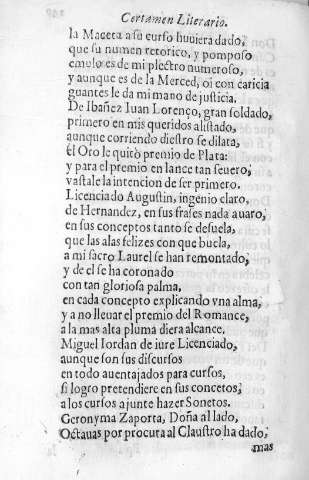 Certamen Literario.
la Maceta a su curso huuiera dado,
que su numen retorico, y pomposo
emulo es de mi plectro numeroso,
y aunque es de la Merced, oi con caricia
guantes le da mi mano de justicia.
De Ibañez Iuan Lorenço, gran soldado,
primero en mis queridos alistado,
aunque corriendo diestro se dilata,
el Oro le quitò premio de Plata:
y para el premio en lance tan seuero;
vastale la intencion de ser primero.
Licenciado Augustin, ingenio claro,
de Hernandez, en sus frases nada auaro,
en sus conceptos tanto se desuela,
que las alas felizes con que buela,
a mi sacro Laurel se han remontado;
y de el se ha coronado
con tan gloriosa palma,
en cada concepto explicando vna alma,
y a no lleuar el premio del Romance,
a la mas alta pluma diera alcance.
Miguel Iordan de iure Licenciado,
aunque son sus discursos
en todo auentajados para cursos,
si logro pretendiere en sus concetos,
a los cursos ajunte hazer Sonetos.
Geronyma Zaporta, Doña al lado,
Octauas por procura al Claustro ha dado,
mas